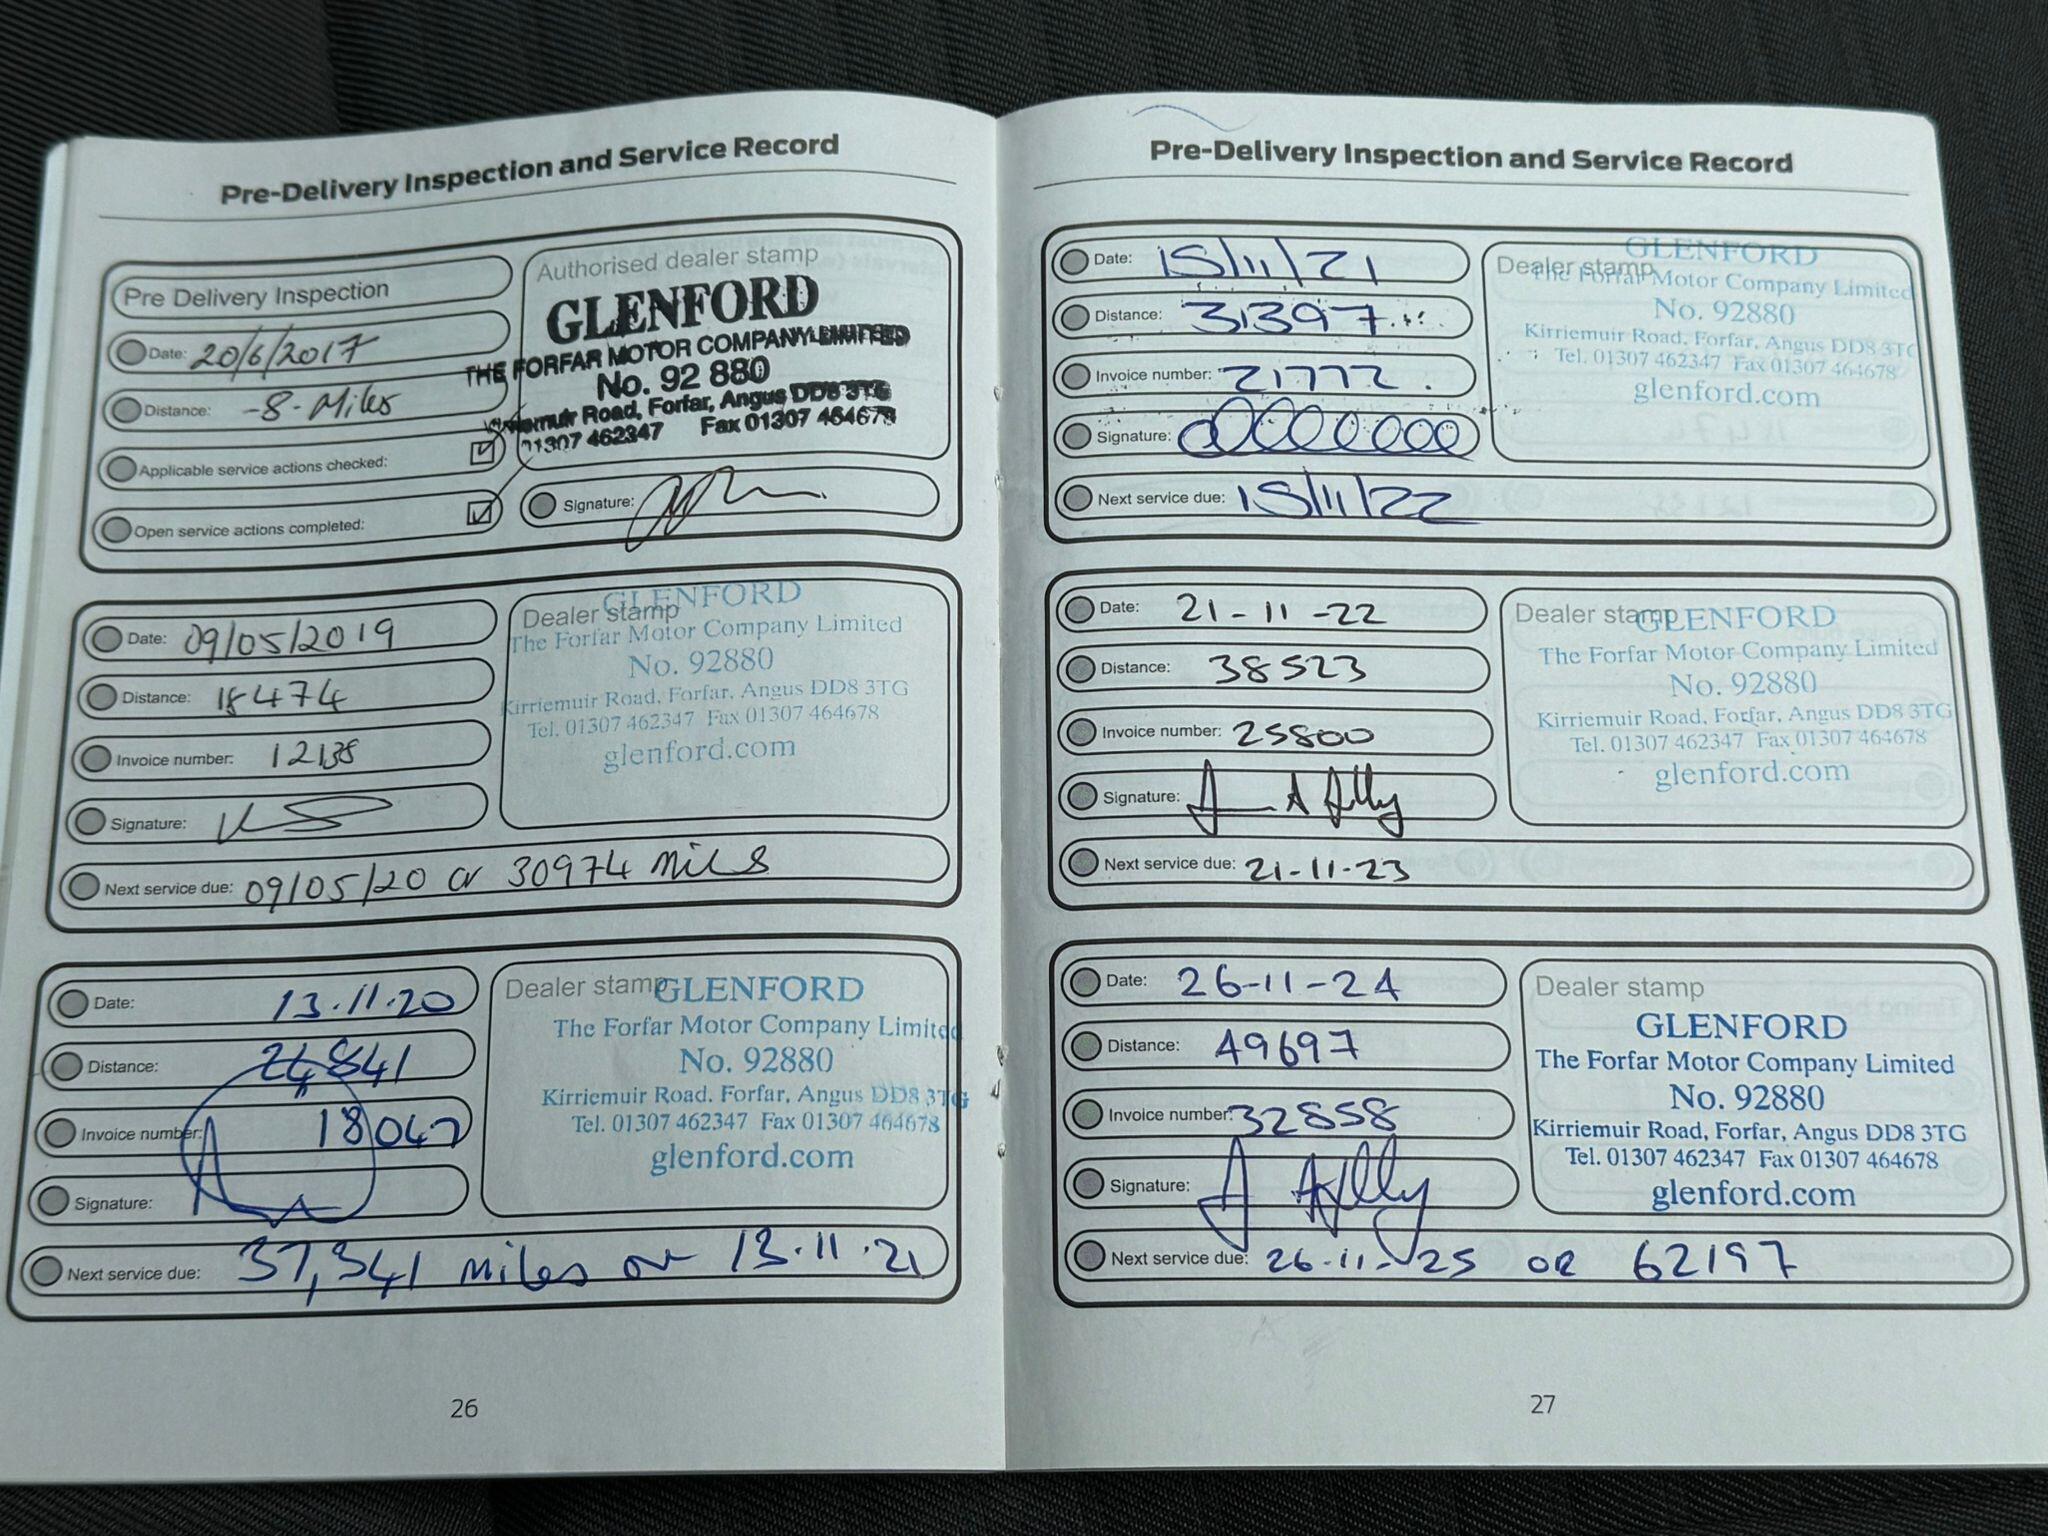 Pre-Delivery Inspection and Service Record
Pre Delivery Inspection
Date: 20/6/2017
Distance: -8- Miles
Applicable service actions checked:
Open service actions completed:
Authorised dealer stamp
GLENFORD
THE FORFAR MOTOR COMPANY LIMITED
No. 92 880
Kirriemuir Road, Forfar, Angus DD8 3TG
01307 462347 Fax 01307 464678
Signature:
Date: 09/05/2019
Distance: 18474
Invoice number: 12138
Signature:
Next service due: 09/05/20 or 30974 miles
Dealer stamp
GLENFORD
The Forfar Motor Company Limited
No. 92880
Kirriemuir Road, Forfar, Angus DD8 3TG
Tel. 01307 462347 Fax 01307 464678
glenford.com
Date: 13.11.20
Distance: 24841
Invoice number: 18047
Signature:
Next service due: 37,341 miles or 13.11.21
Dealer stamp
GLENFORD
The Forfar Motor Company Limited
No. 92880
Kirriemuir Road, Forfar, Angus DD8 3TG
Tel. 01307 462347 Fax 01307 464678
glenford.com
26
Pre-Delivery Inspection and Service Record
Date: 15/11/21
Distance: 31397
Invoice number: 21772
Signature:
Next service due: 15/11/22
Dealer stamp
GLENFORD
The Forfar Motor Company Limited
No. 92880
Kirriemuir Road, Forfar, Angus DD8 3TG
Tel. 01307 462347 Fax 01307 464678
glenford.com
Date: 21-11-22
Distance: 38523
Invoice number: 25800
Signature:
Next service due: 21-11-23
Dealer stamp
GLENFORD
The Forfar Motor Company Limited
No. 92880
Kirriemuir Road, Forfar, Angus DD8 3TG
Tel. 01307 462347 Fax 01307 464678
glenford.com
Date: 26-11-24
Distance: 49697
Invoice number: 32858
Signature:
Next service due: 26-11-25 OR 62197
Dealer stamp
GLENFORD
The Forfar Motor Company Limited
No. 92880
Kirriemuir Road, Forfar, Angus DD8 3TG
Tel. 01307 462347 Fax 01307 464678
glenford.com
27